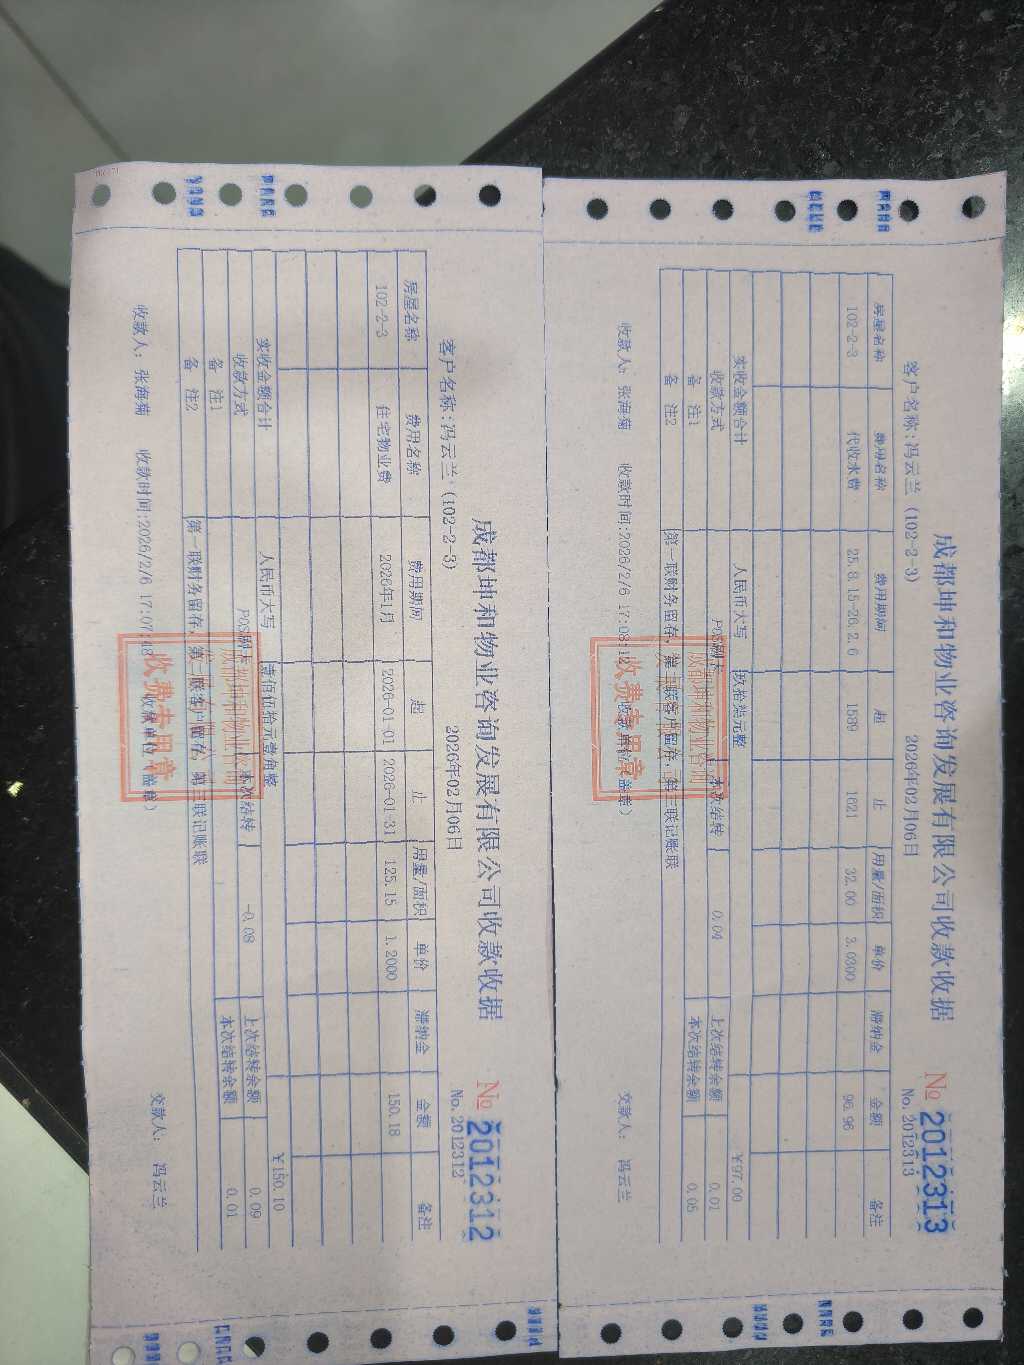 成都坤和物业咨询发展有限公司收款收据
№ 2012313
客户名称:冯云兰 (102-2-3) 2026年02月06日 No. 2012313
房屋名称 费用名称 费用期间 起 止 用量/面积 单价 滞纳金 金额 备注
102-2-3 代收水费 25.8.15-26.2.6 1589 1621 32.00 3.0300 96.96
实收金额合计 人民币大写 玖拾柒元整 ￥97.00
收款方式 POS刷卡 本次结转 0.04 上次结转余额 0.01
备 注1 本次结转余额 0.05
备 注2 第一联财务留存, 第二联客户留存, 第三联记账联
收款人: 张海菊 收款时间:2026/2/6 17:08:12 收款单位(盖章) 交款人: 冯云兰
成都坤和物业咨询
收费专用章
成都坤和物业咨询发展有限公司收款收据
№ 2012312
客户名称:冯云兰 (102-2-3) 2026年02月06日 No. 2012312
房屋名称 费用名称 费用期间 起 止 用量/面积 单价 滞纳金 金额 备注
102-2-3 住宅物业费 2026年1月 2026-01-01 2026-01-31 125.15 1.2000 150.18
实收金额合计 人民币大写 壹佰伍拾元壹角整 ￥150.10
收款方式 POS刷卡 本次结转 -0.08 上次结转余额 0.09
备 注1 本次结转余额 0.01
备 注2 第一联财务留存, 第二联客户留存, 第三联记账联
收款人: 张海菊 收款时间:2026/2/6 17:07:48 收款单位(盖章) 交款人: 冯云兰
成都坤和物业咨询
收费专用章